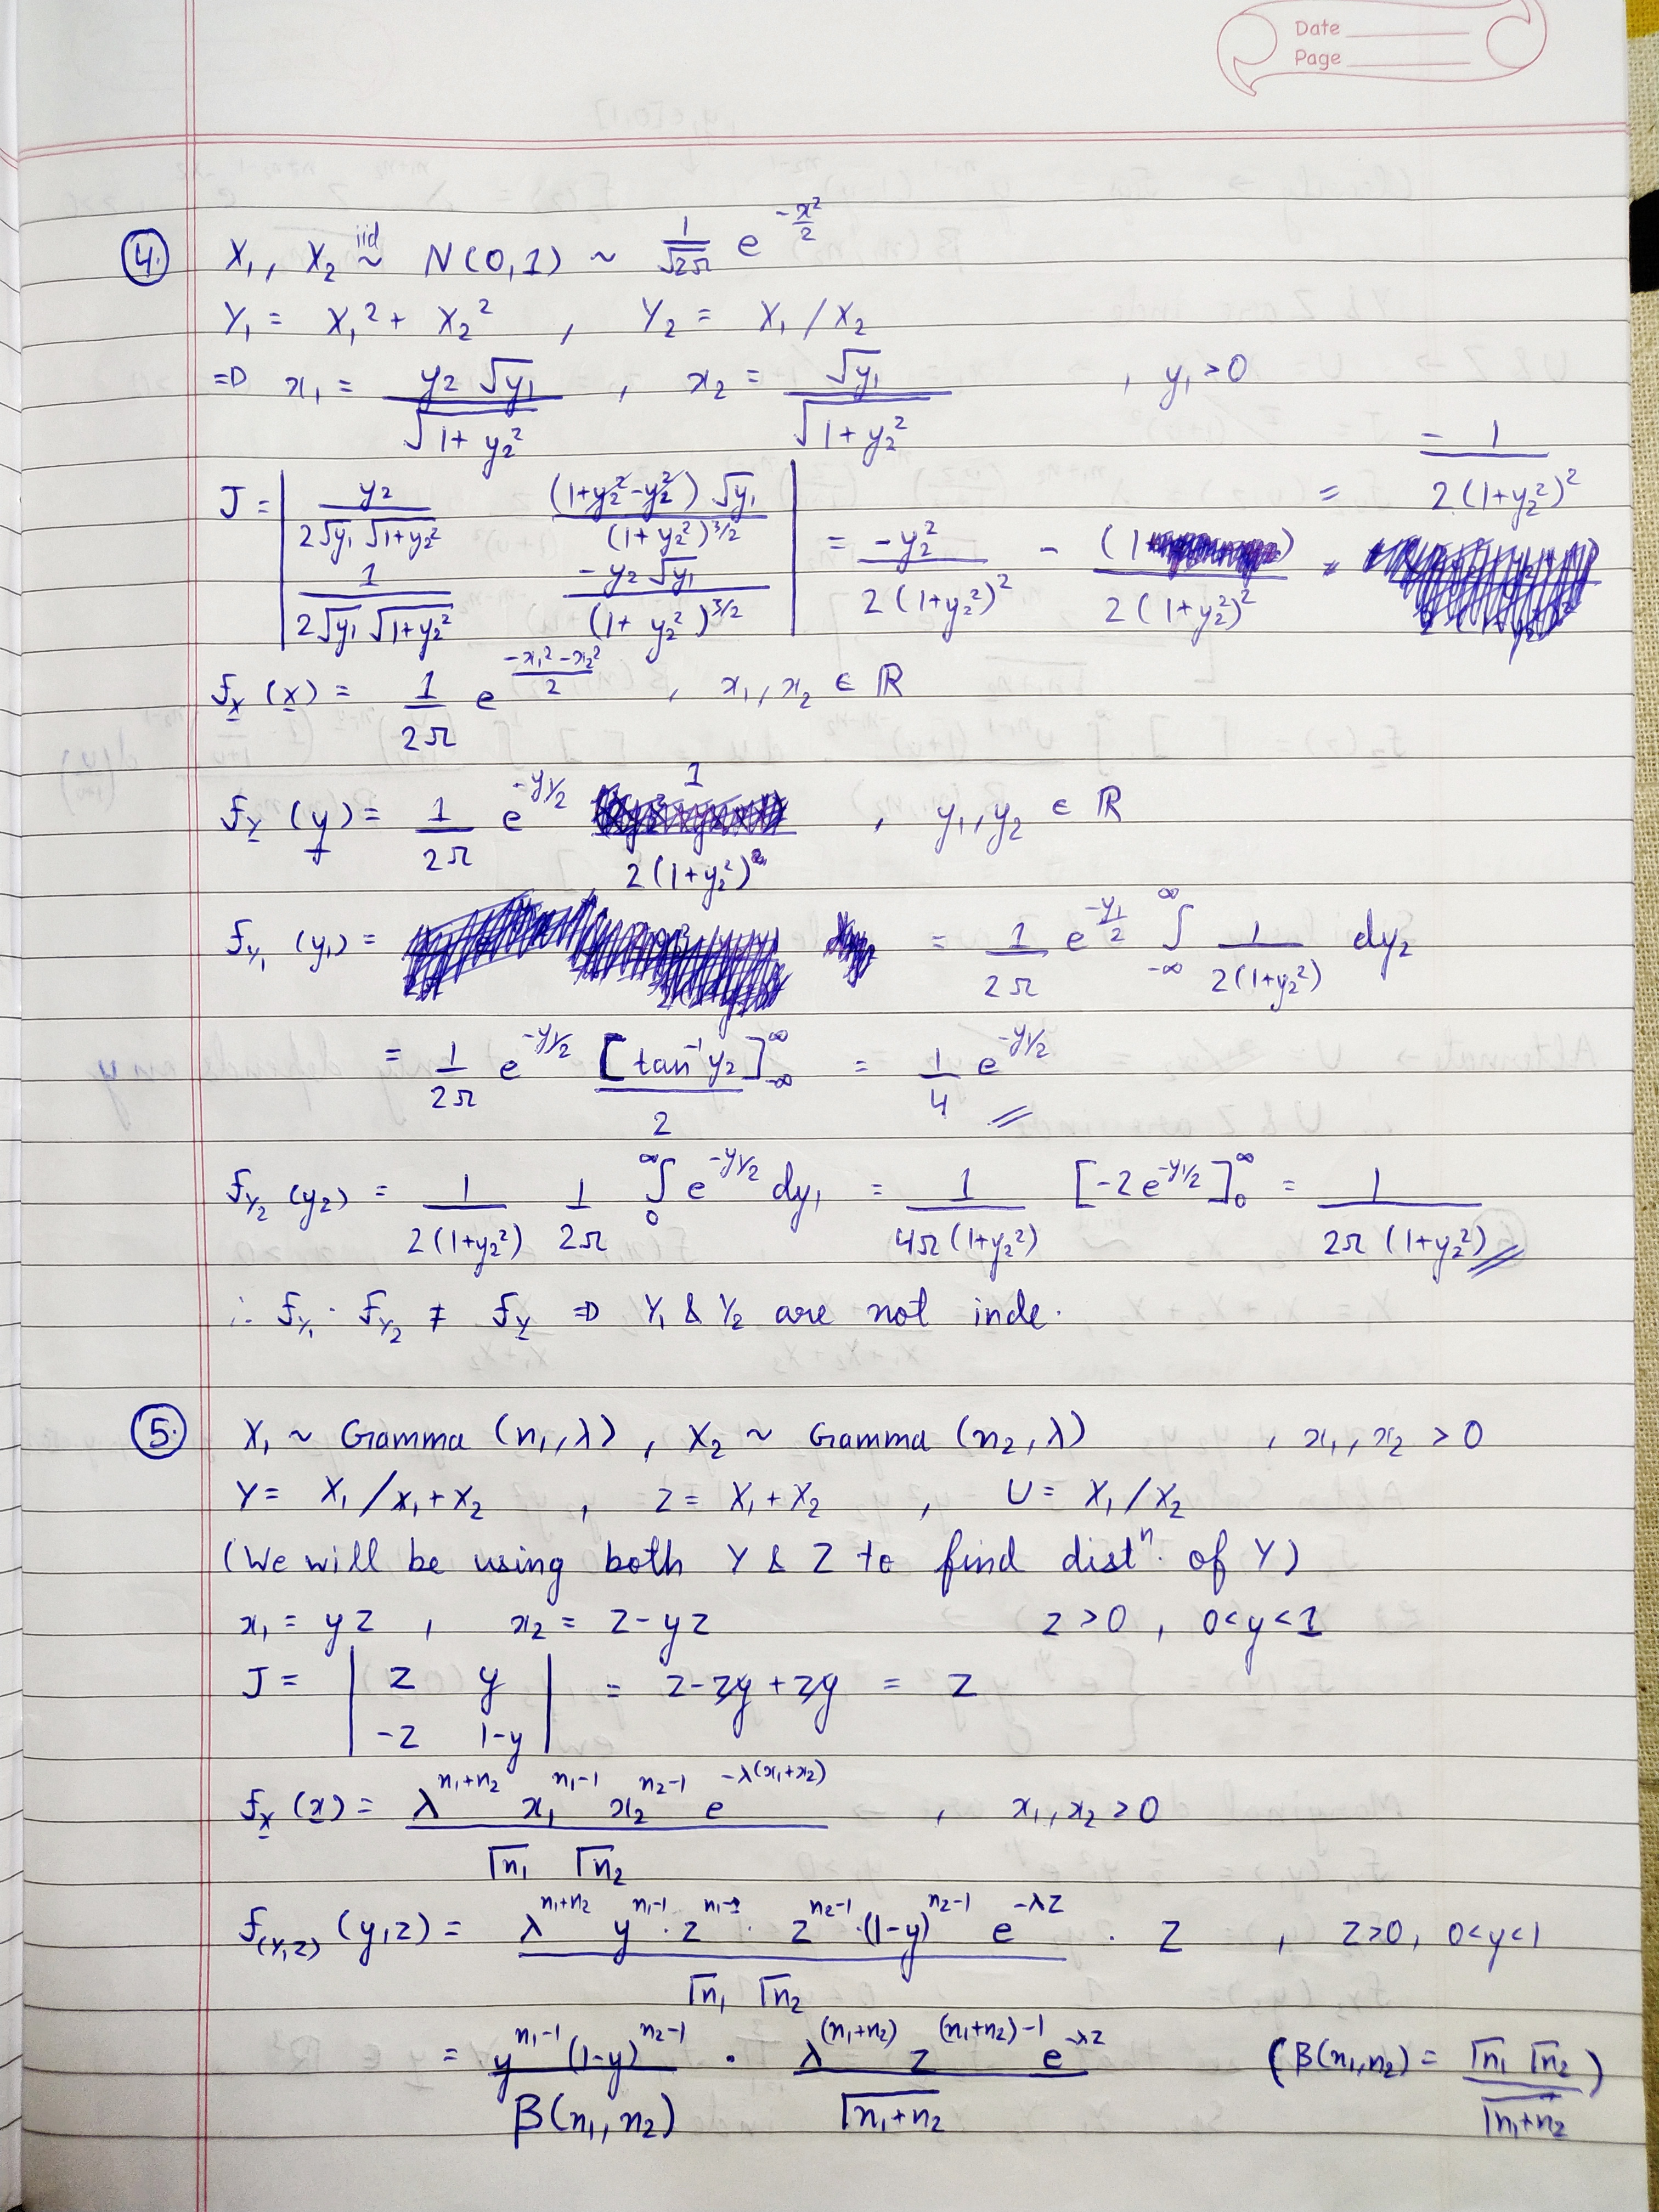 Date
Page
4. X₁, X₂ iid ~ N(0,1) ~ 1/√2π e^(-x²/2)
Y₁ = X₁² + X₂² , Y₂ = X₁/X₂
⇒ x₁ = y₂√y₁ / √(1+y₂²) , x₂ = √y₁ / √(1+y₂²) , y₁>0
J = | y₂ / (2√y₁ √(1+y₂²))   (1+y₂²-y₂²)√y₁ / (1+y₂²)^(3/2) |
| 1 / (2√y₁ √(1+y₂²))   -y₂√y₁ / (1+y₂²)^(3/2) | = -y₂² / 2(1+y₂²)² - (1 ) / 2(1+y₂²)² = - 1 / 2(1+y₂²)²
f_X (x) = 1/2π e^((-x₁²-x₂²)/2) , x₁, x₂ ∈ ℝ
f_Y (y) = 1/2π e^(-y₁/2) 1 / 2(1+y₂²) , y₁, y₂ ∈ ℝ
f_Y₁ (y₁) = = 1/2π e^(-y₁/2) ∫_{-∞}^{∞} 1 / 2(1+y₂²) dy₂
= 1/2π e^(-y₁/2) [tan⁻¹y₂]_{-∞}^{∞} / 2 = 1/4 e^(-y₁/2)
f_Y₂ (y₂) = 1 / 2(1+y₂²) 1/2π ∫_0^∞ e^(-y₁/2) dy₁ = 1 / 4π(1+y₂²) [-2e^(-y₁/2)]_0^∞ = 1 / 2π(1+y₂²)
∴ f_Y₁ · f_Y₂ ≠ f_Y ⇒ Y₁ & Y₂ are not inde.
5. X₁ ~ Gamma (n₁, λ) , X₂ ~ Gamma (n₂, λ) , x₁, x₂ > 0
Y = X₁/X₁+X₂ , Z = X₁+X₂ , U = X₁/X₂
(We will be using both Y & Z to find distⁿ. of Y)
x₁ = yz , x₂ = z-yz z>0 , 0<y<1
J = | z   y |
| -z   1-y | = z-zy+zy = z
f_X (x) = λ^(n₁+n₂) x₁^(n₁-1) x₂^(n₂-1) e^(-λ(x₁+x₂)) / Γn₁ Γn₂ , x₁, x₂ > 0
f_(Y,Z) (y,z) = λ^(n₁+n₂) y^(n₁-1) · z^(n₁-1) · z^(n₂-1) · (1-y)^(n₂-1) e^(-λz) / Γn₁ Γn₂ · z , z>0, 0<y<1
= y^(n₁-1) (1-y)^(n₂-1) / β(n₁, n₂) · λ^(n₁+n₂) z^((n₁+n₂)-1) e^(-λz) / Γn₁+n₂ (β(n₁,n₂) = Γn₁ Γn₂ / Γn₁+n₂)